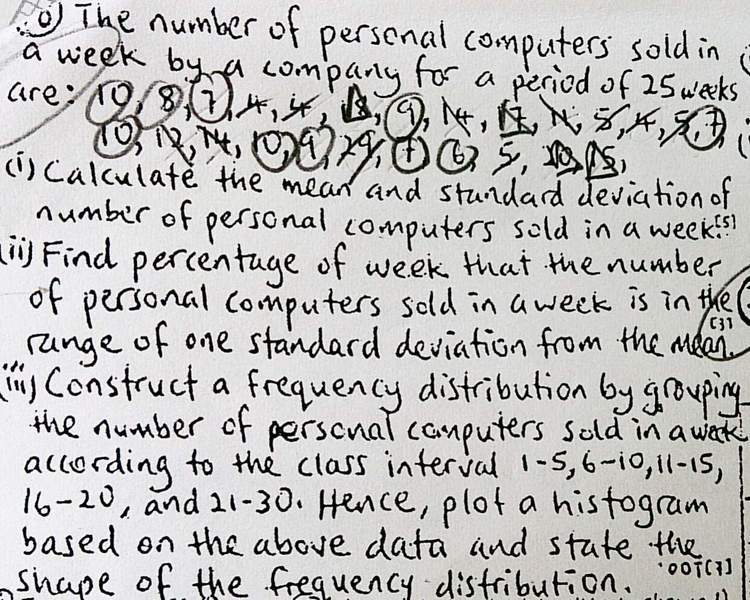 The number of personal computers sold in
a week by a company for a period of 25 weeks
are: 10, 8, 7, 4, 4, 18, 9, 14, 17, 5, 4, 5, 7,
10, 12, 14, 10, 9, 29, 7, 6, 5,
(i) Calculate the mean and standard deviation of
number of personal computers sold in a week. [5]
(ii) Find percentage of week that the number
of personal computers sold in a week is in the
range of one standard deviation from the mean. [3]
(iii) Construct a frequency distribution by grouping
the number of personal computers sold in a week
according to the class interval 1-5, 6-10, 11-15,
16-20, and 21-30. Hence, plot a histogram
based on the above data and state the
shape of the frequency distribution.